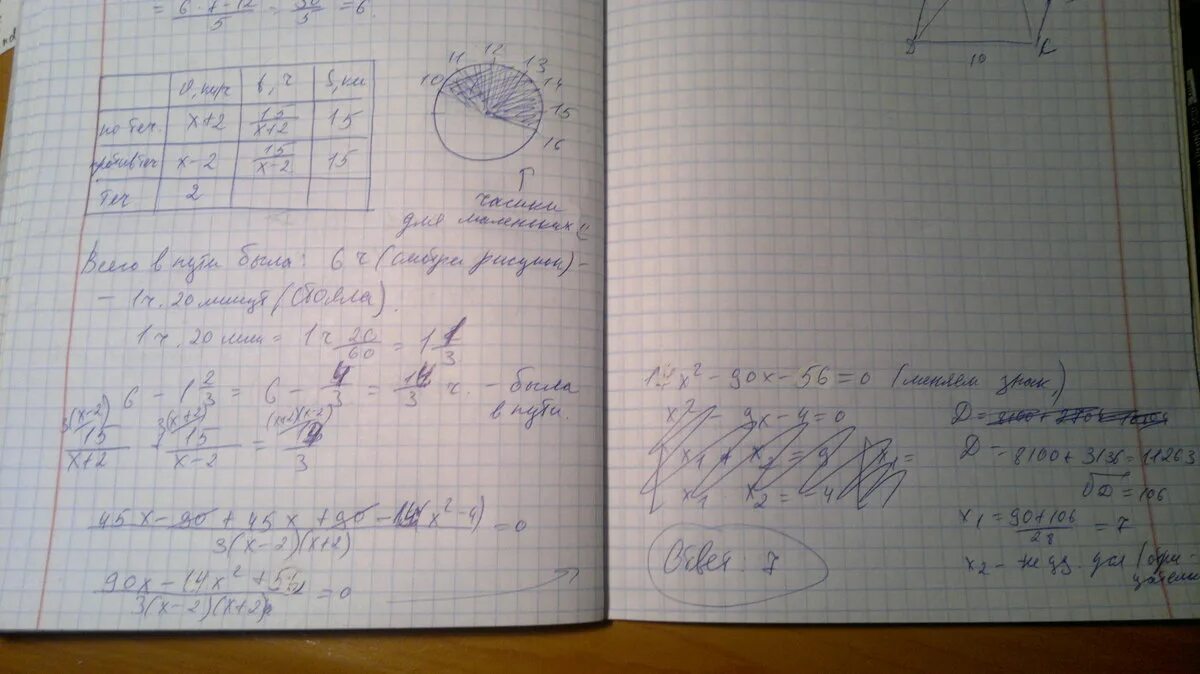 = (6·7-12)/5 = 30/5 = 6.
v, км/ч t, ч S, км
по теч. x+2 15/(x+2) 15
против теч x-2 15/(x-2) 15
теч 2
10 11 12 13 14 15 16
↑
часики
для маленьких
Всего в пути была: 6 ч (смотри рисунок) -
- 1 ч. 20 минут (стояла).
1 ч. 20 мин = 1 ч 20/60 = 1 1/3
6 - 1 2/3 = 6 - 4/3 = 14/3 ч. - была
в пути.
3(x-2) 3(x+2) (x+2)(x-2)
15/(x+2) + 15/(x-2) = 14/3
(45x - 90 + 45x + 90 - 14(x²-4))/(3(x-2)(x+2)) = 0
(90x - 14x² + 56)/(3(x-2)(x+2)) = 0
B 10
14x² - 90x - 56 = 0 (меняем знак)
x² - 9x - 4 = 0
x₁ + x₂ = 9 x₁ =
x₁ · x₂ = -4
Ответ: 7
D =
D = 8100 + 3136 = 11263
√D = 106
x₁ = (90+106)/28 = 7
x₂ - не уд. усл (отри-
цательн